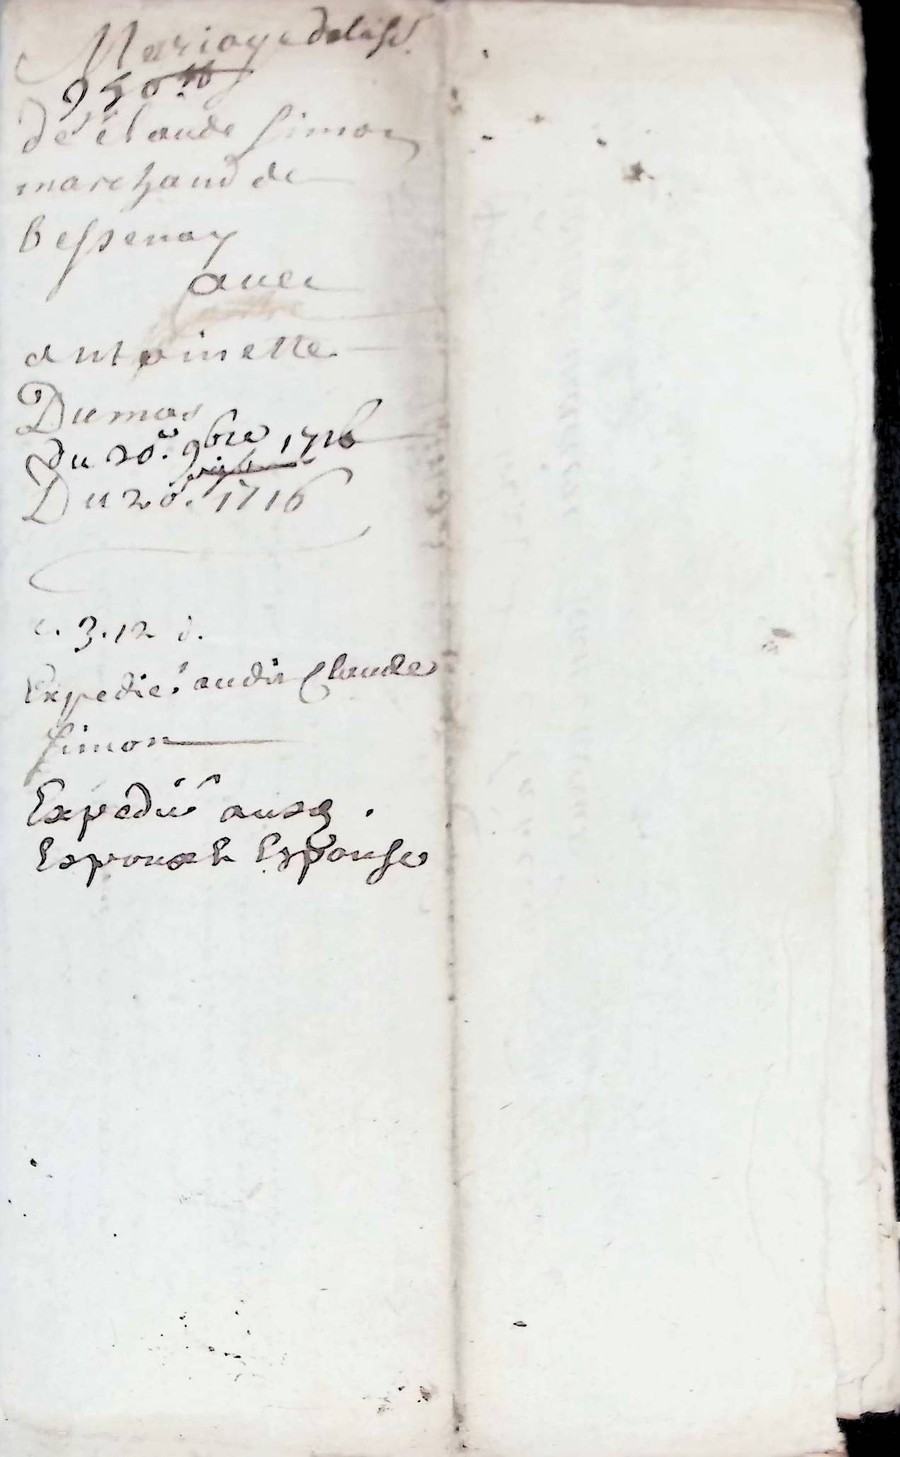 Mariage
950 ℔
de claude Simon
marchand de
bessenay
avec
antoinette
Dumas
du 20.e 9bre 1716
Du 20. 1716
c. 3. 12 d.
Expedié audit Claude
Simon
Expedié ausd.
Espoux & Espouse